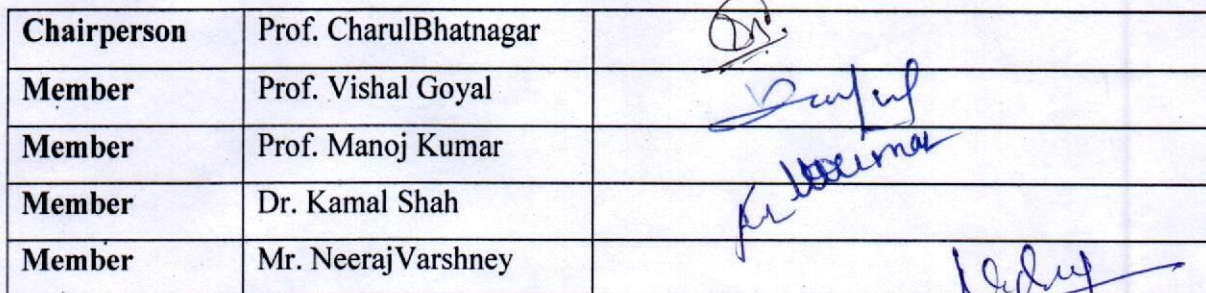 Chairperson Prof. CharulBhatnagar
Member Prof. Vishal Goyal
Member Prof. Manoj Kumar
Member Dr. Kamal Shah
Member Mr. NeerajVarshney